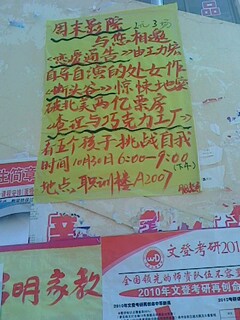 周末影院
与您相遇
《恋爱通告》由王力宏
自导自演的处女作
《断头谷》惊悚地
破北美两亿票房
《查理与巧克力工厂》
看五个孩子挑战自我
时间10月30日6:00-9:00
(下午)
地点：职训楼A2009
文登考研201
全国领先的师资队伍不容置
2010年文登考研再创命
明家教